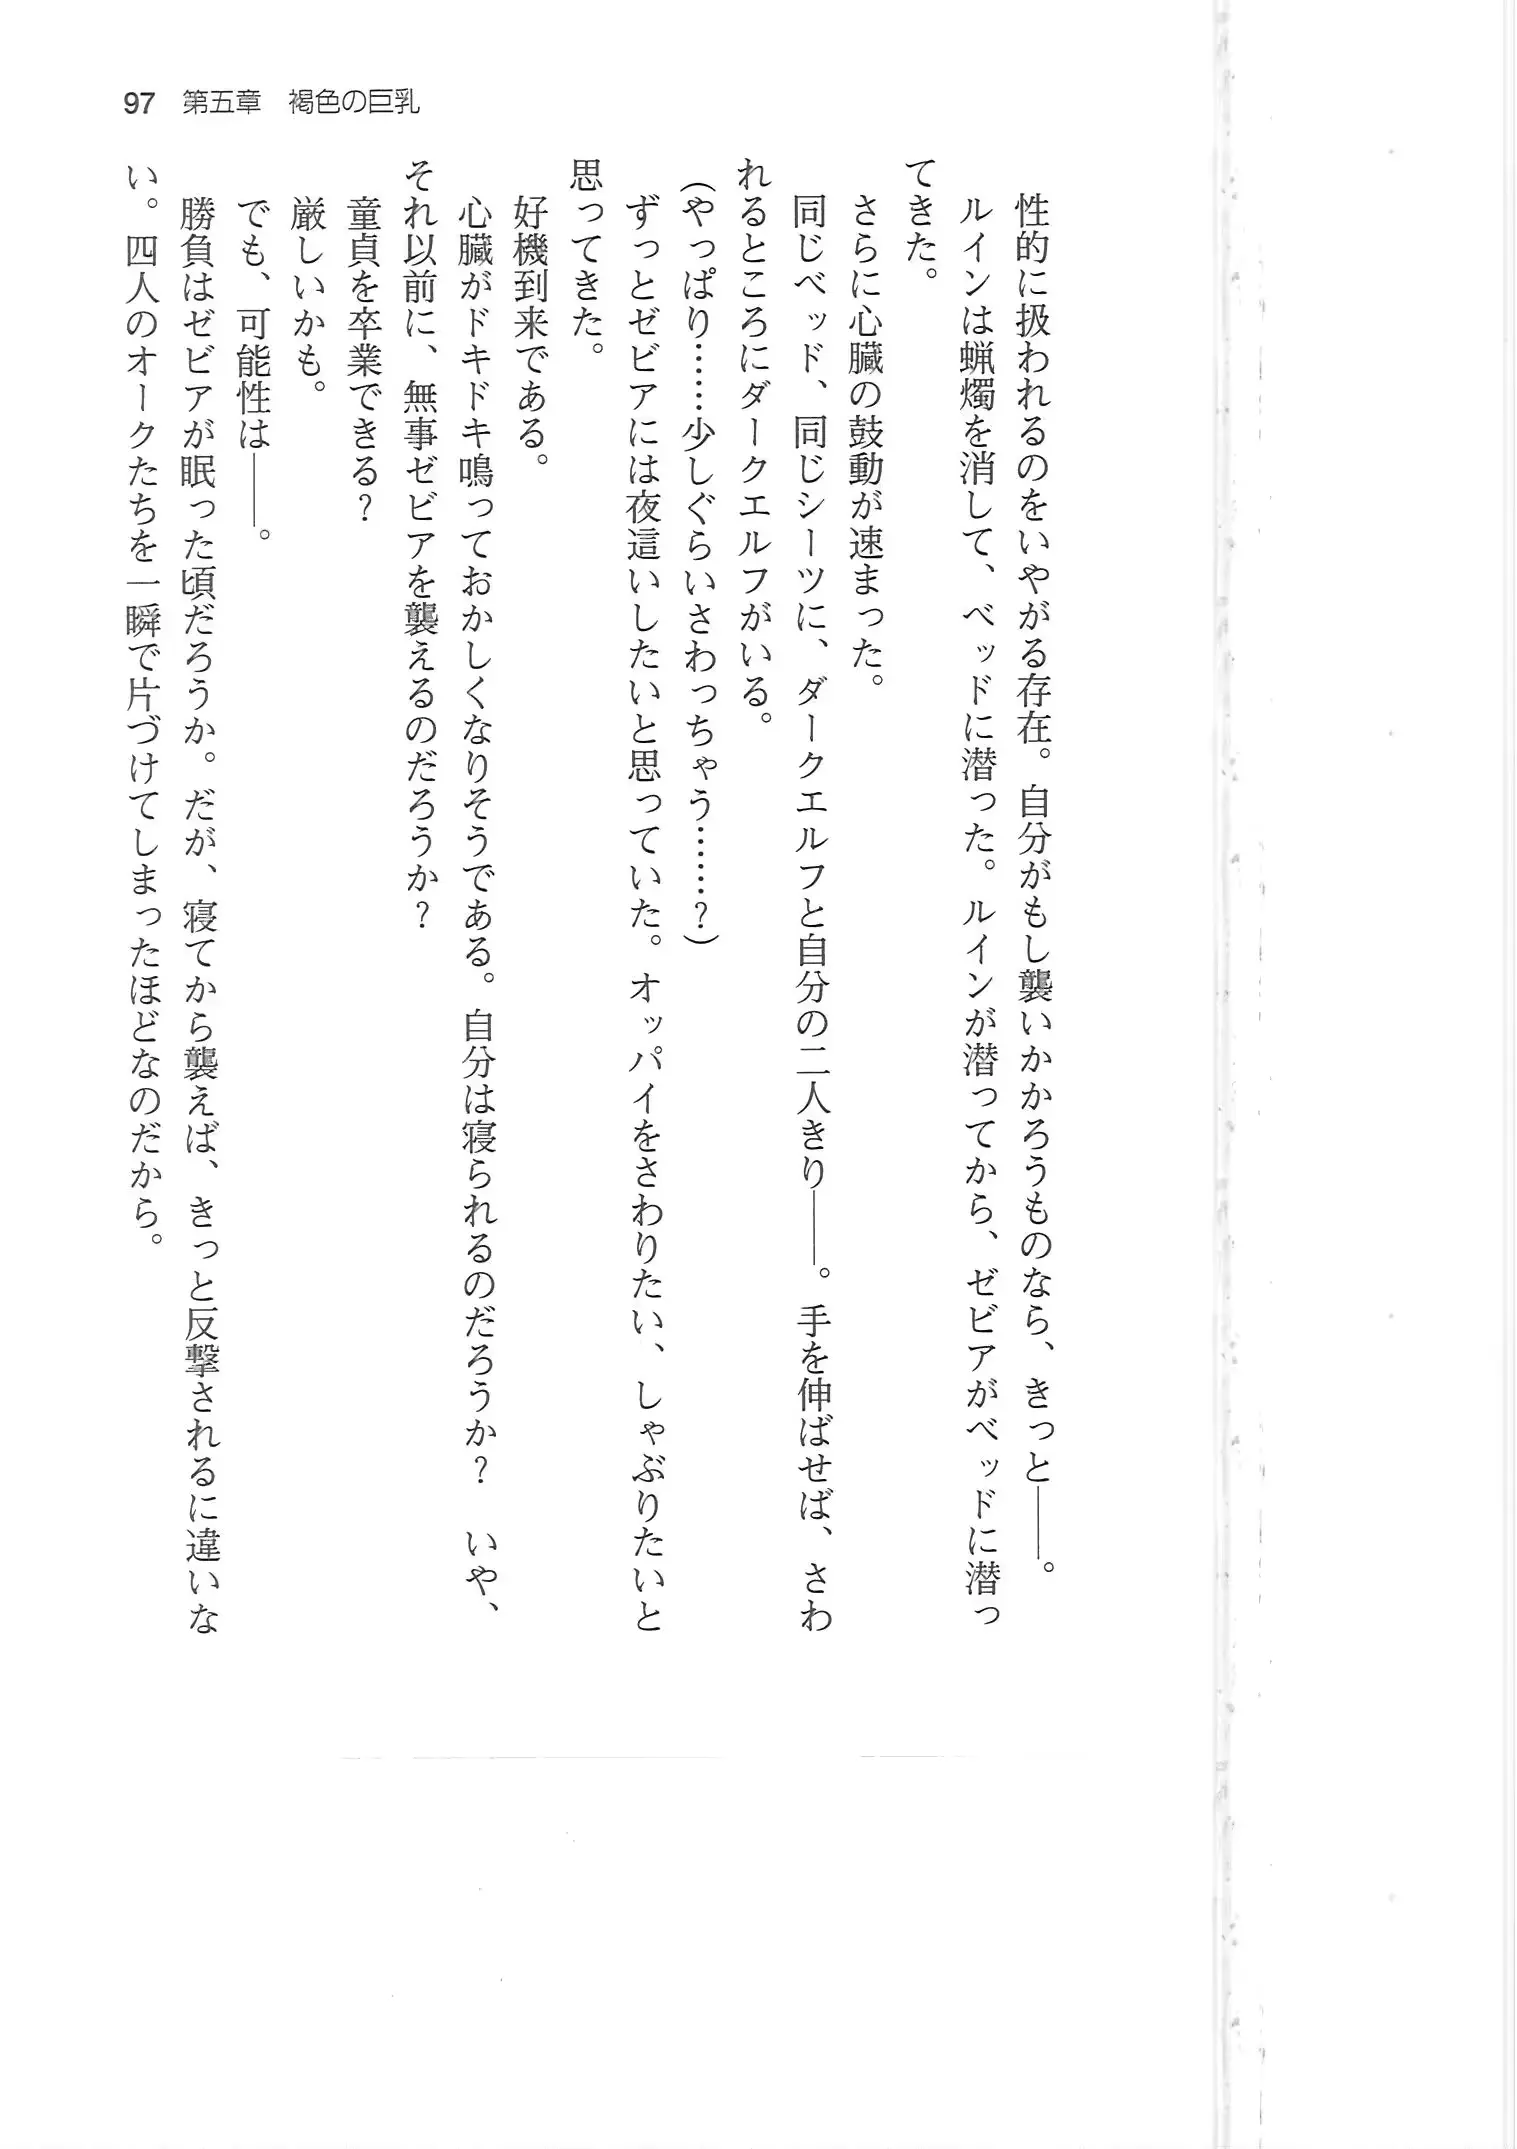 97 第五章 褐色の巨乳
性的に扱われるのをいやがる存在。自分がもし襲いかかろうものなら、きっと――。
ルインは蝋燭を消して、ベッドに潜った。ルインが潜ってから、ゼビアがベッドに潜っ
てきた。
さらに心臓の鼓動が速まった。
同じベッド、同じシーツに、ダークエルフと自分の二人きり――。手を伸ばせば、さわ
れるところにダークエルフがいる。
(やっぱり……少しぐらいさわっちゃう……?)
ずっとゼビアには夜這いしたいと思っていた。オッパイをさわりたい、しゃぶりたいと
思ってきた。
好機到来である。
心臓がドキドキ鳴っておかしくなりそうである。自分は寝られるのだろうか? いや、
それ以前に、無事ゼビアを襲えるのだろうか?
童貞を卒業できる?
厳しいかも。
でも、可能性は――。
勝負はゼビアが眠った頃だろうか。だが、寝てから襲えば、きっと反撃されるに違いな
い。四人のオークたちを一瞬で片づけてしまったほどなのだから。